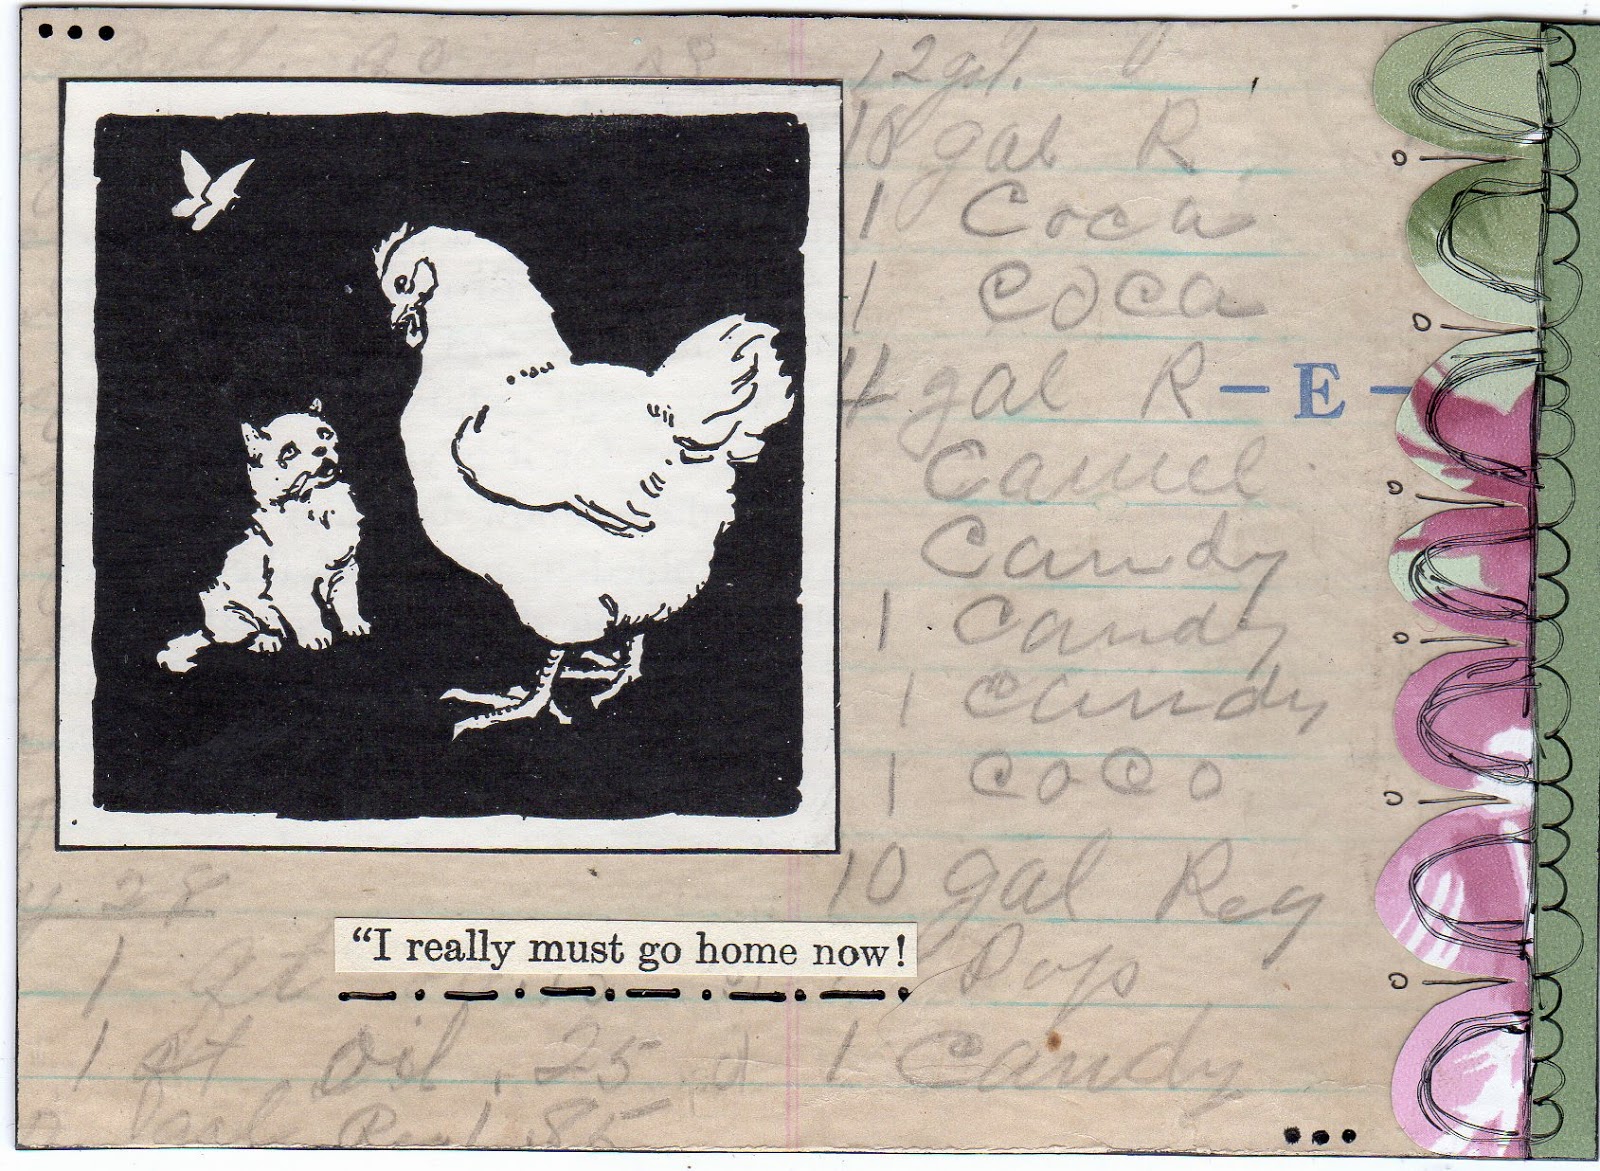 12 gal.
10 gal R
1 Coca
1 Coca
4 gal R
– E –
Camel
Candy
1 Candy
1 Candy
1 Coco
10 gal Reg
28
“I really must go home now!
Pop
1 qt
1 qt oil .25
1 Candy
.85